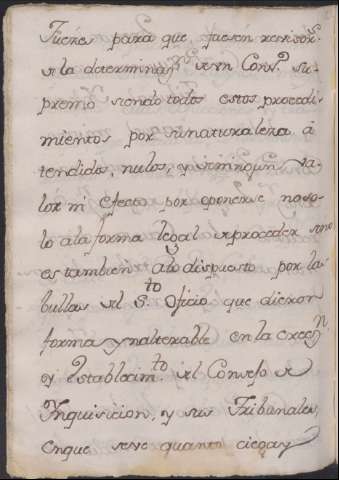 Juezes para que fuesen revisor.s
de la determinaz.n de un Cons.o Su-
premo siendo todos estos procedi-
mientos por su naturaleza a
tendidos, nulos, y de ningun va-
lor ni efecto por oponerse no so-
lo a la forma legal de proceder sino
es tambien a lo dispuesto por las
bullas del S.to Oficio, que dieron
forma ynalterable en la creec.n
y establecim.to del Consejo de
Ynquisicion, y sus Tribunales,
en que se ve quanto ciega y